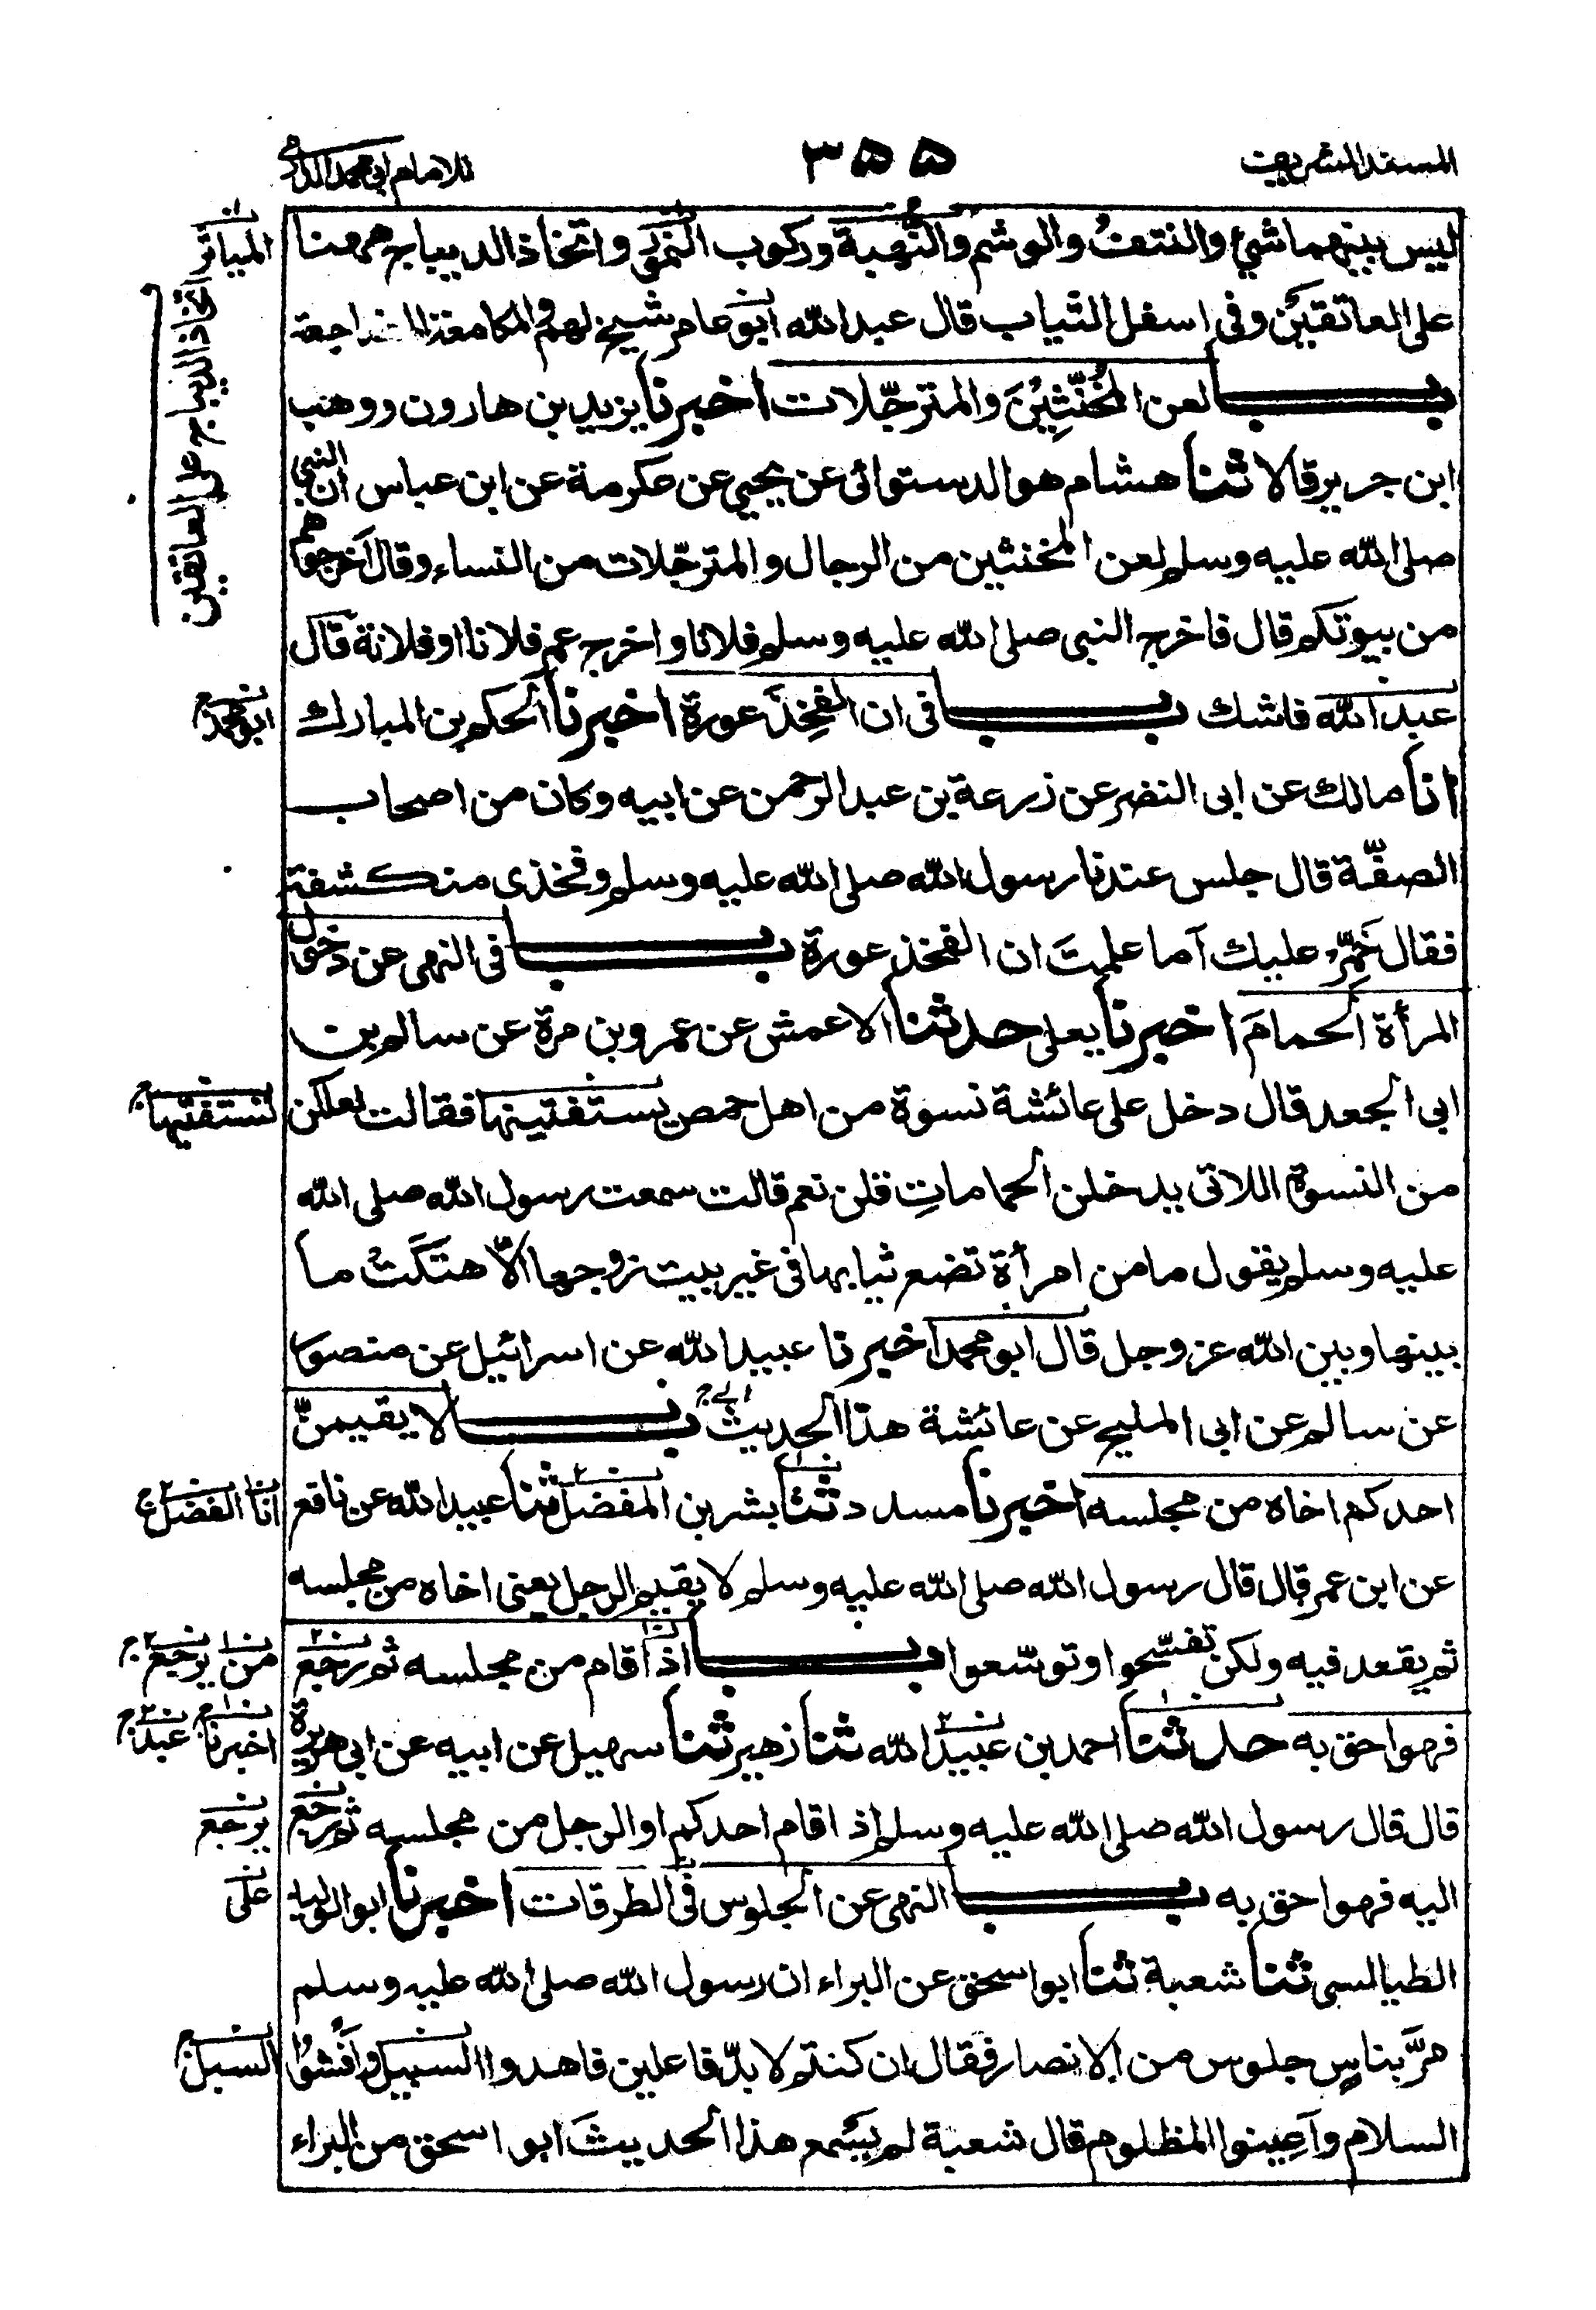 المسند الشريف
٣٥٥
للامام ابى محمد الدارمى
ليس بينهما شئ والنتف والوشم والنُّهبة وركوب النمور واتخاذ الديباج ههنا
على العاتقين وفى اسفل الثياب قال عبد الله ابو عامر شيخ لهم والمكامعة المضاجعة
باب لعن المُخَنَّثِيْنَ والمترجّلات اخبرنا يزيد بن هارون ووهب
ابن جرير قالا ثنا هشام هو الدستوائى عن يحيى عن عكرمة عن ابن عباس ان النبي
صلى الله عليه وسلم لعن المخنثين من الرجال والمترجّلات من النساء وقال اخرجوهم
من بيوتكم قال فاخرج النبى صلى الله عليه وسلم فلانا واخرج عمر فلانا او فلانة قال
عبد الله فاشك باب فى ان الفخِذَ عورة اخبرنا الحكم بن المبارك
انا مالك عن ابى النضر عن زرعة بن عبد الرحمن عن ابيه وكان من اصحاب
الصفّة قال جلس عندنا رسول الله صلى الله عليه وسلم وفخذى منكشفة
فقال خَمِّرْ عليك اَما علمتَ ان الفخذ عورة باب فى النهى عن دخول
المرأة الحمامَ اخبرنا يعلى حدثنا الاعمش عن عمرو بن مرة عن سالم بن
ابى الجعد قال دخل على عائشة نسوة من اهل حمص يستفتينها فقالت لعلكن
من النسوة اللاتى يدخلن الحماماتِ قلن نعم قالت سمعت رسول الله صلى الله
عليه وسلم يقول ما من امرأة تضع ثيابها فى غير بيت زوجها الّا هتَكَتْ ما
بينها وبين الله عز وجل قال ابو محمد اخبرنا عبيد الله عن اسرائيل عن منصور
عن سالم عن ابى المليح عن عائشة هذا الحديث باب لا يقيمنَّ
احدكم اخاه من مجلسه اخبرنا مسدد ثنا بشر بن المفضل ثنا عبيد الله عن نافع
عن ابن عمر قال قال رسول الله صلى الله عليه وسلم لا يقيم الرجل يعنى اخاه من مجلسه
ثم يقعد فيه ولكن تفسّحوا وتوسّعوا باب اذا قام من مجلسه ثم رجع
فهو احق به حدثنا احمد بن عبيد الله ثنا زهير ثنا سهيل عن ابيه عن ابى هريرة
قال قال رسول الله صلى الله عليه وسلم اذا قام احدكم او الرجل من مجلسه ثم رجع
اليه فهو احق به باب النهى عن الجلوس فى الطرقات اخبرنا ابو الوليد
الطيالسى ثنا شعبة ثنا ابو اسحق عن البراء ان رسول الله صلى الله عليه وسلم
مرَّ بناس جلوس من الانصار فقال ان كنتم لا بدّ فاعلين فاهدوا السبيل وافْشُوا
السلام واَعِينوا المظلوم قال شعبة لم يَسْمع هذا الحديثَ ابو اسحق من البراء
المياثر
اتخاذ الديباج على العاتقين
ابو محمد
تستفتيها
انا الفضل
من يرجع
اخبرنا عبد
يرجع
على
السبل